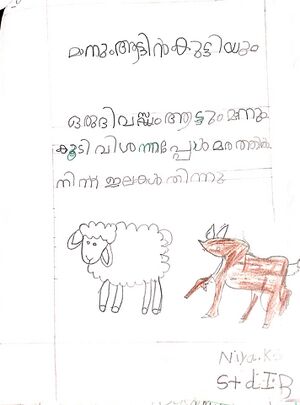 മാനും ആട്ടിൻ കുട്ടിയും
ഒരു ദിവസം ആട്ടും മാനും
കൂടി വിശന്നപ്പോൾ മരത്തിൽ
നിന്ന് ഇലകൾ തിന്നു
Niya.K
Std I B